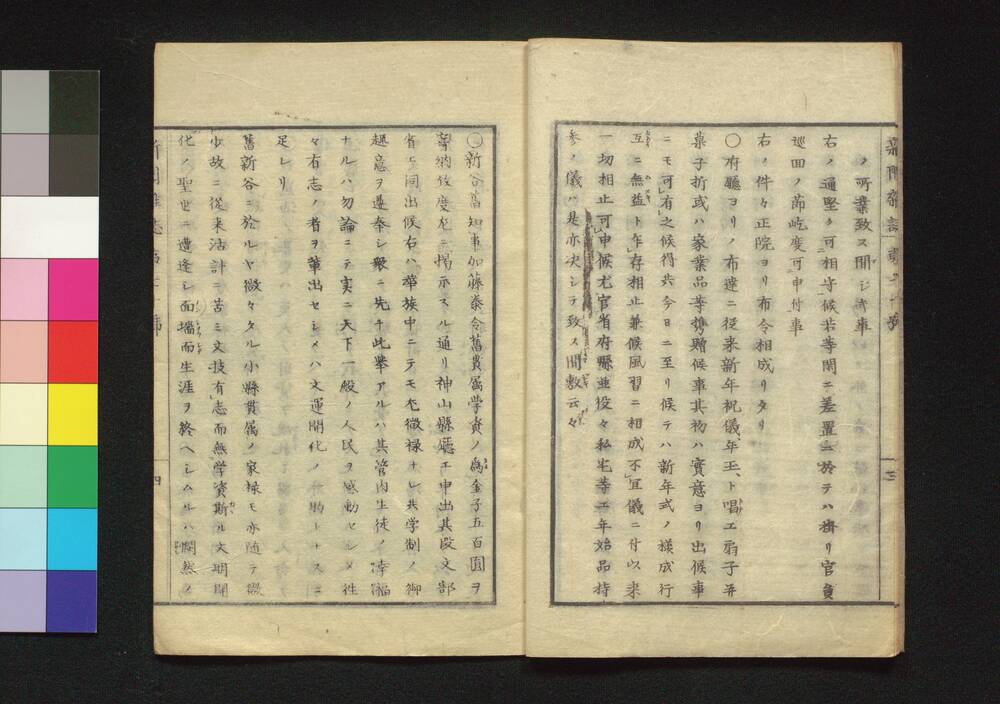 ノ所業致ス間ジキ事
右ノ通堅ク可相守候若等閑ニ差置ニ於テハ掛リ官員
巡回ノ節屹度可申付事
右ノ件々正院ヨリ布令相成リタリ
〇府廳ヨリノ布達ニ従来新年祝儀年玉ト唱エ扇子并
菓子折或ハ家業品等携贈候事其初ハ實意ヨリ出候事
ニモ可有之候得共今日ニ至リ候テハ新年式ノ様成行
互ニ無益ト乍存相止兼候風習ニ相成不宜儀ニ付以来
一切相止可申候尤官省府縣並役々私宅等エ年始品持
参ノ儀ハ是亦決シテ致ス間敷云々
三
〇新谷舊知事加藤泰令舊貫属学資ノ為金子五百圓ヲ
寄納致度左ニ掲示スル通リ神山縣廳エ申出其段文部
省ヒ同出候右ハ華族中ニテモ尤微禄ナレ共学制ノ御
趣意ヲ遵奉シ衆ニ先チ此挙アルハ其管内生徒ノ幸福
ナルハ勿論ニテ実ニ天下一般ノ人民ヲ感動セシメ往
々有志ノ者ヲ輩出セシメハ文運開化ノ トスニ
足レリ
舊新谷ニ於ルヤ微々タル小縣貫属ノ家禄モ亦随テ微
少故ニ従来活計ニ苦ミ文技有志而無学資斯ル文明開
化ノ聖世ニ遭逢シ面墻而生涯ヲ終ヘシムルハ憫然ノ
四